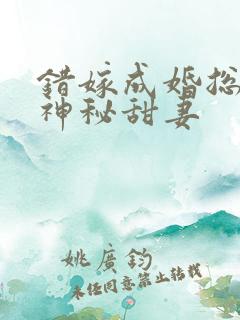 錯嫁成婚总
神秘甜妻
姚廣鈞
未经同意禁止转载